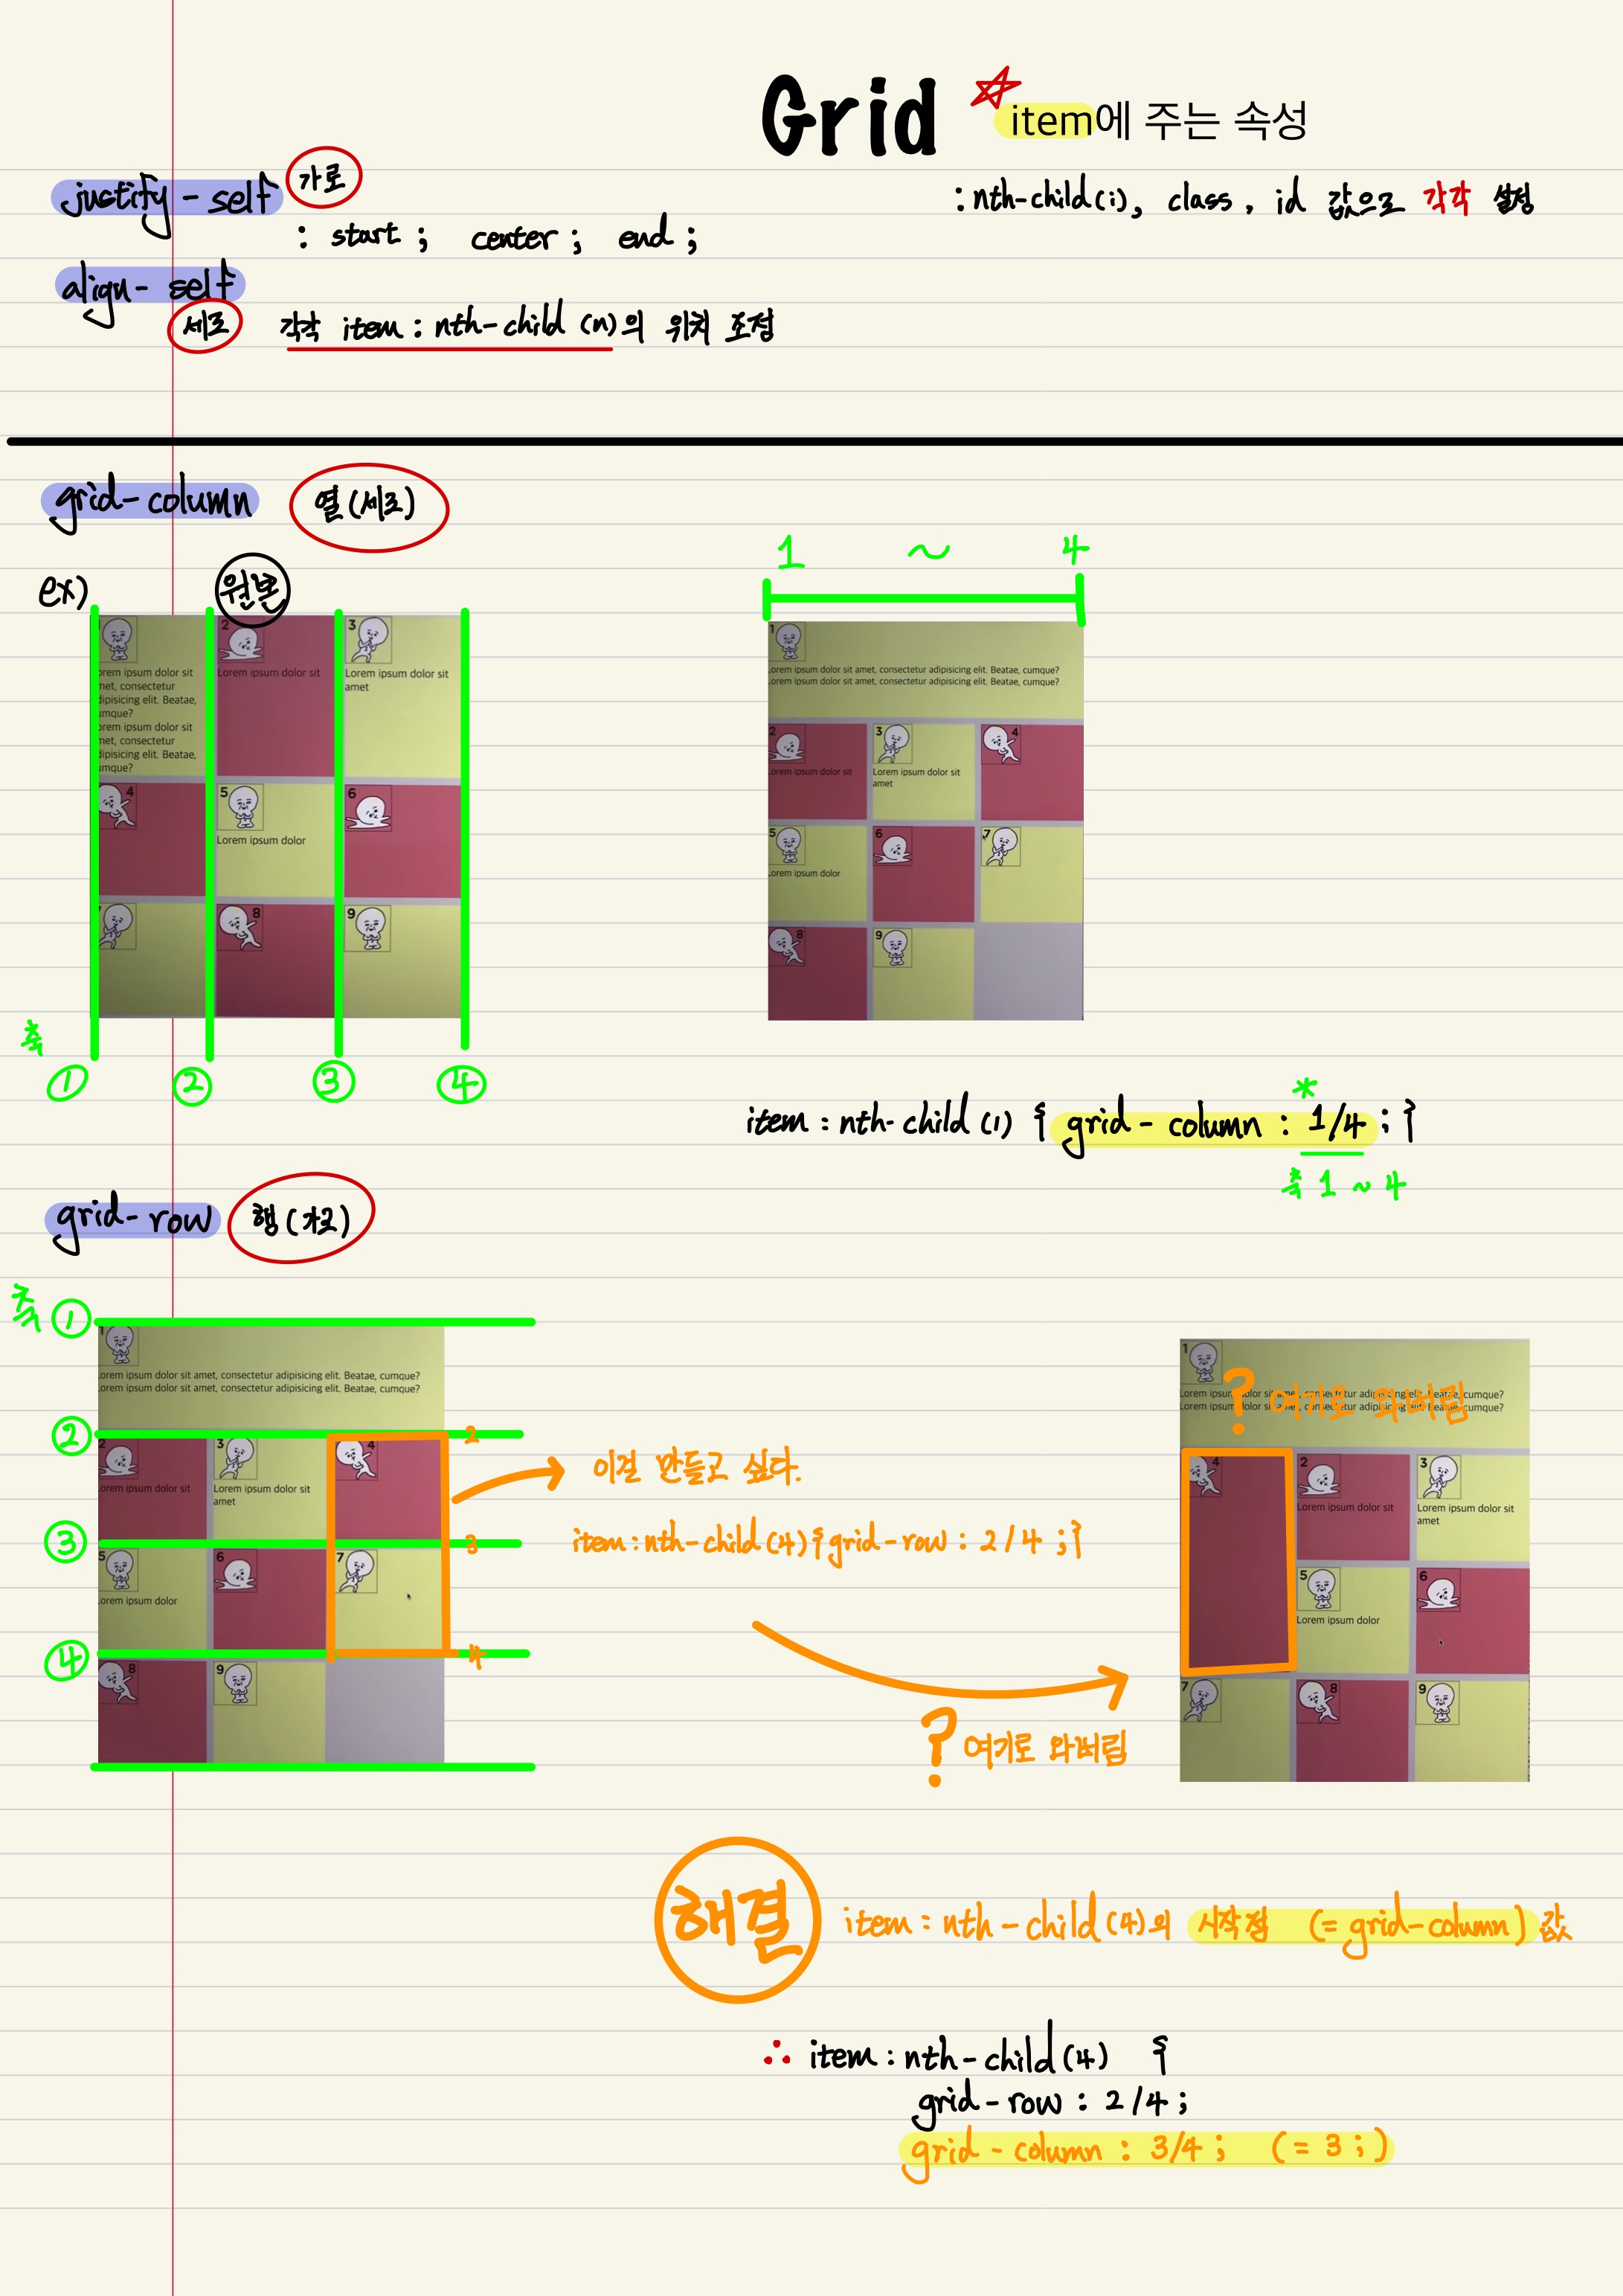 Grid
item에 주는 속성
:nth-child(i), class, id 값으로 각각 설정
justify-self 가로
: start ; center ; end ;
align-self
세로 각각 item : nth-child (n)의 위치 조정
grid-column 열(세로)
ex) 원본
1
orem ipsum dolor sit
met, consectetur
dipisicing elit. Beatae,
umque?
orem ipsum dolor sit
met, consectetur
dipisicing elit. Beatae,
umque?
2
Lorem ipsum dolor sit
3
Lorem ipsum dolor sit
amet
4
5
Lorem ipsum dolor
6
7
8
9
축
① ② ③ ④
1 ~ 4
1
orem ipsum dolor sit amet, consectetur adipisicing elit. Beatae, cumque?
orem ipsum dolor sit amet, consectetur adipisicing elit. Beatae, cumque?
2
orem ipsum dolor sit
3
Lorem ipsum dolor sit
amet
4
5
orem ipsum dolor
6
7
8
9
*
item : nth-child (1) { grid-column : 1/4 ; }
축 1 ~ 4
grid-row 행(가로)
축 ①
②
③
④
1
orem ipsum dolor sit amet, consectetur adipisicing elit. Beatae, cumque?
orem ipsum dolor sit amet, consectetur adipisicing elit. Beatae, cumque?
2
orem ipsum dolor sit
3
Lorem ipsum dolor sit
amet
4
5
orem ipsum dolor
6
7
8
9
2
3
4
이걸 만들고 싶다.
item:nth-child(4){grid-row : 2/4 ;}
? 여기로 와버림
1
orem ipsum dolor sit amet, consectetur adipisicing elit. Beatae, cumque?
orem ipsum dolor sit amet, consectetur adipisicing elit. Beatae, cumque?
? 여기로 와버림
4
2
Lorem ipsum dolor sit
3
Lorem ipsum dolor sit
amet
5
Lorem ipsum dolor
6
7
8
9
해결 item : nth-child(4)의 시작점 (= grid-column) 값
∴ item : nth-child(4) {
grid-row : 2/4 ;
grid-column : 3/4 ; (= 3 ;)